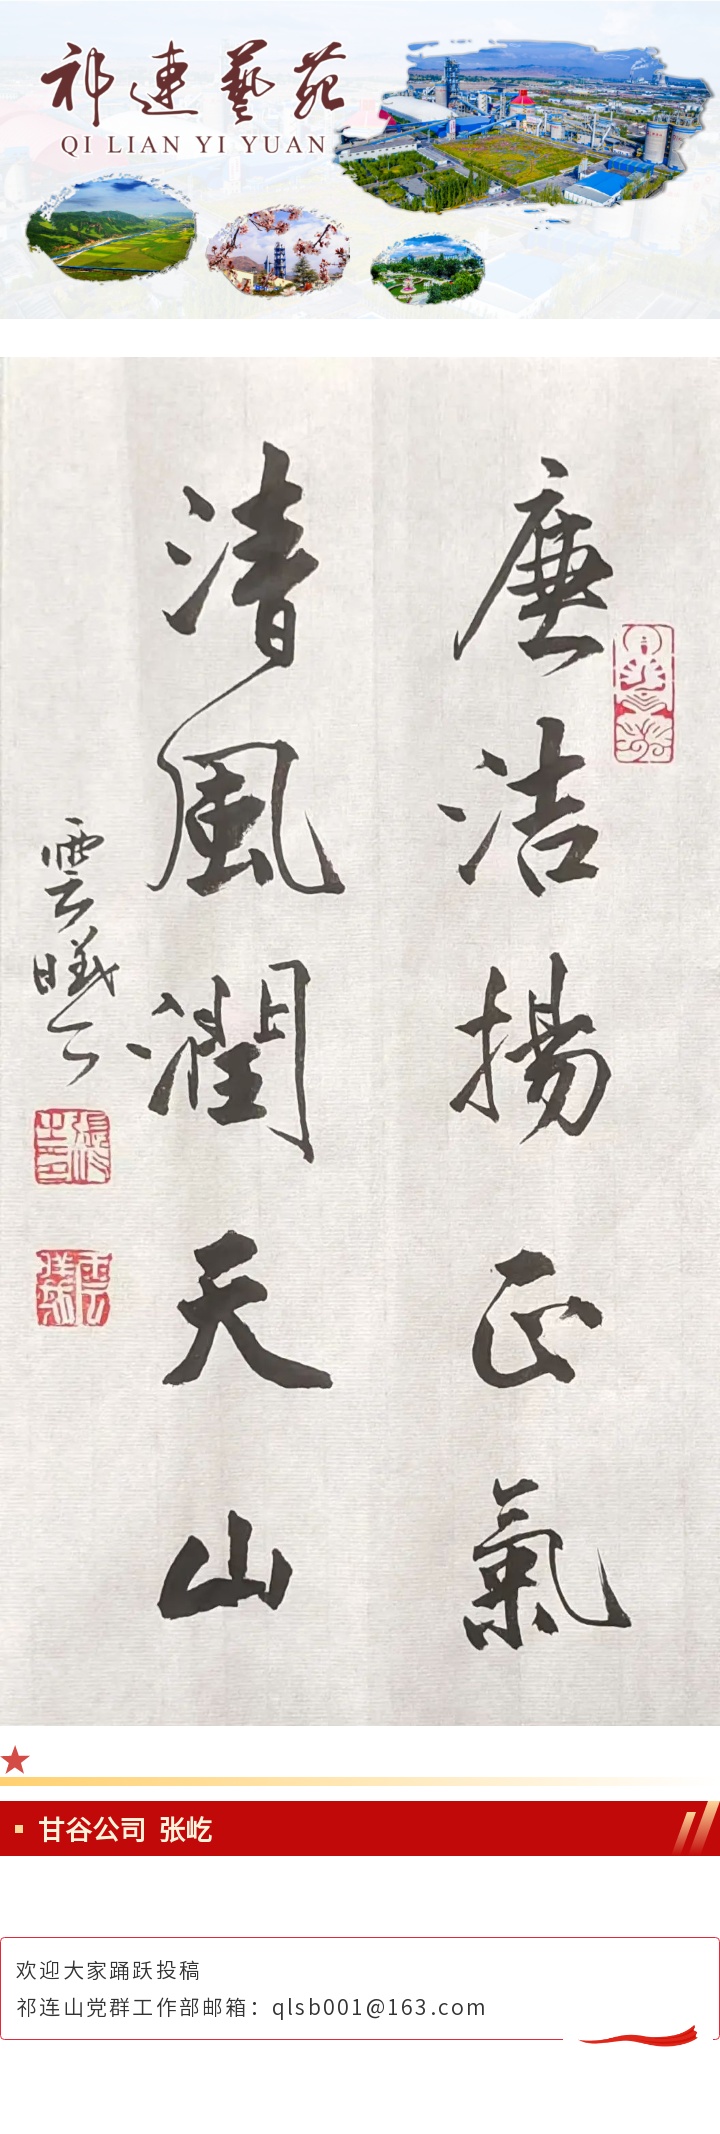 祁连艺苑
QI LIAN YI YUAN
廉洁揚正氣
清風潤天山
雲曦
甘谷公司 张屹
欢迎大家踊跃投稿
祁连山党群工作部邮箱：qlsb001@163.com